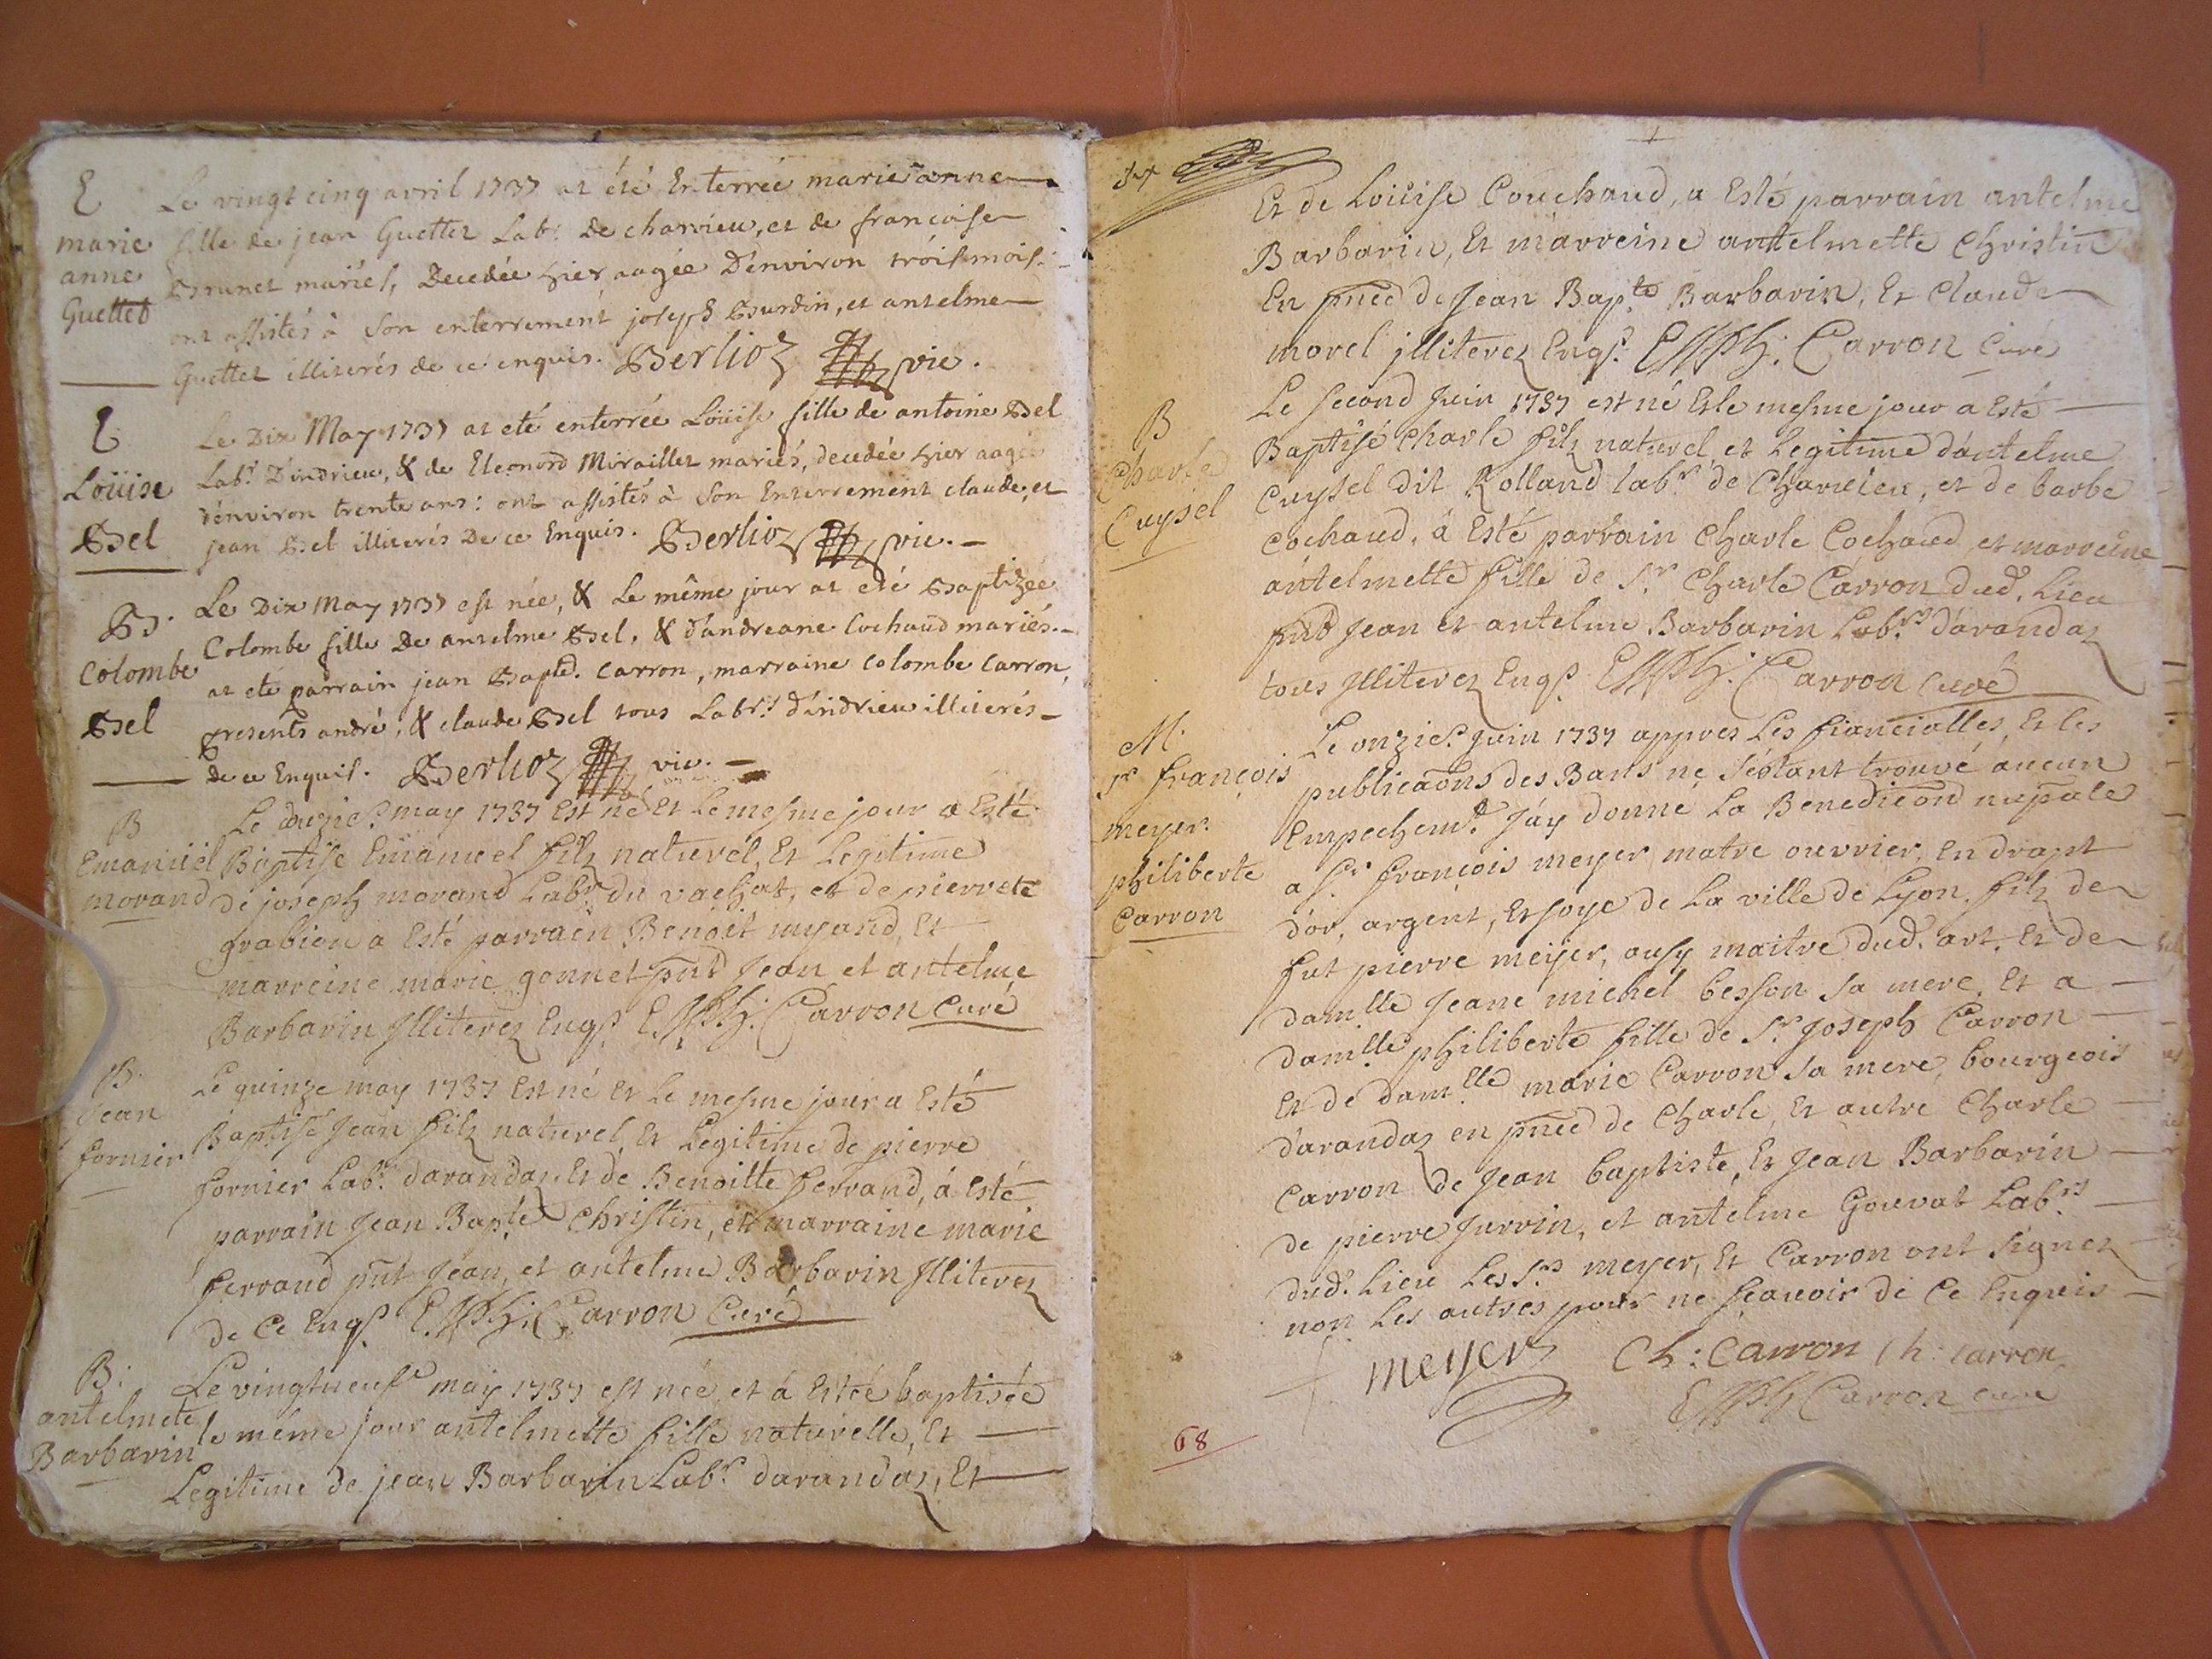 E
marie
anne
Guettet
Le vingt cinq avril 1737 at été Enterrée marie anne
fille de jean Guettet Labr. de charvieu, et de francoise
Brunet mariés, Decedée hier aagée D'environ trois mois.
ont assistés à Son enterrement joseph Burdin, et antelme
Guettet illiterés de ce enquis. Berlioz vic.
E
Loüise
Bel
Le Dix May 1737 at eté enterrée Loüise fille de antoine Bel
Labr. D'indrieu, & de Eleonord Miraillet mariés, decedée hier aagée
d'environ trente ans: ont assistés à Son Enterrement claude, et
jean Bel illiterés De ce Enquis. Berlioz vic.
B.
Colombe
Bel
Le Dix May 1737 est née, & Le même jour at eté Baptizée
Colombe fille De antelme Bel, & d'andreane Cochaud mariés.
at eté parrain jean Bapte. Carron, marraine Colombe Carron,
Presents andré, & claude Bel tous Labrs. d'indrieu illiterés
de ce Enquis. Berlioz vic.
B
Emanüel
morand
Le may 1737 Est né Et Le mesme jour a Esté
Baptisé Emanuel filz naturel, Et Legitime
de joseph morand Labr. du vachat, et de pierrete
grabion a Esté parrain Benoît myand, Et
marreine marie gonnet pnt Jean et antelme
Barbarin Jlliterez Enqs. Carron Curé
B.
Jean
fornier
Le quinze may 1737 Est né Et Le mesme jour a Esté
Baptisé Jean filz naturel, Et Legitime de pierre
fornier Labr. darandaz, Et de Benoitte ferrand, á Esté
parrain Jean Bapte. Christin, et marraine marie
ferrand pnt Jean, et antelme Barbarin Jlliterez
de Ce Enqs. Carron Curé
B.
antelmete
Barbarin
Le vingtneufe may 1737 est née et á Estée baptisée
le même jour antelmette fille naturelle, Et
Legitime de jean Barbarin Labr. darandaz, Et
Et de Loüise Couchaud, a Esté parrain antelme
Barbarin, Et marreine antelmette Christin
En pnce de Jean Bapte. Barbarin, Et Claude
morel jlliterez Enqs. Carron Curé
B
Charle
Cuysel
Le second Juin 1737 est né Et le mesme jour a Esté
Baptisé Charle filz naturel, et Legitime d'antelme
Cuysel dit Rolland labr. de Charvieu, et de barbe
Cochaud, á Esté parrain Charle Cochaud et marreine
antelmette fille de Sr. Charle Carron dud. Lieu
pnt Jean et antelme Barbarin Labrs. d'arandaz
tous Jlliterez Enqs. Carron Curé
M.
Sr françois
meyer.
philiberte
Carron
Le onzie. Juin 1737 appres Les fiancialles, Et les
publicaons des Bans ne s'éstant trouvé aucun
Empechemt. J'ay donné La Benedicion nupale
a Sr. françois meyer matre ouvrier, En drapt
d'or, argent, Et soye de La ville de Lyon, filz de
fut pierre meyer, ausy maitre dud. art, Et de
damlle Jeane michel besson sa mere, Et a
damlle philiberte fille de Sr. Joseph Carron
Et de damlle marie Carron sa mere, bourgeois
d'arandaz en pnce de Charle, Et autre Charle
Carron de Jean baptiste, Et Jean Barbarin
de pierre Jurrin, et antelme Gouvat Labrs
dud. Lieu Les Srs meyer, Et Carron ont signez
non Les autres pour ne sçauoir de Ce Enquis
meyer Ch: Carron Ch: Carron
Carron curé
68